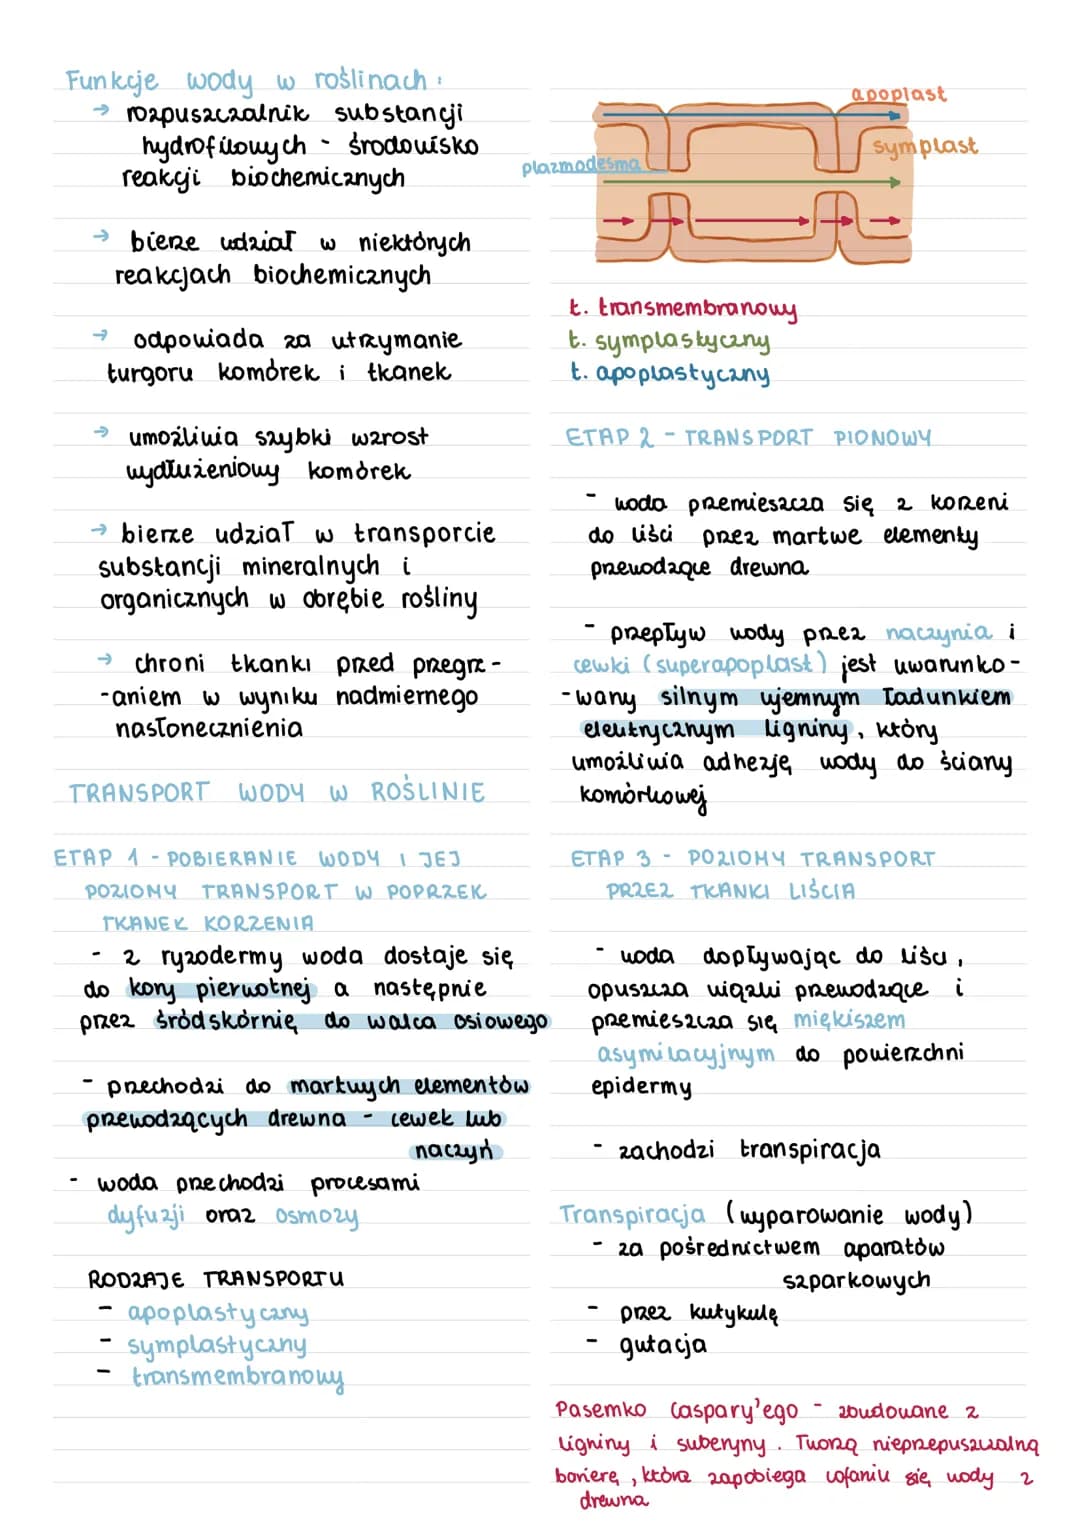 Funkcje wody w roślinach:
→ rozpuszczalnik substancji
hydrofilowych - środowisko
reakcji biochemicznych
→ bierze udział w niektórych
reakcjach biochemicznych
→ odpowiada za utrzymanie
turgoru komórek i tkanek
→ umożliwia szybki wzrost
wydłużeniowy komórek
→ bierze udział w transporcie
substancji mineralnych i
organicznych w obrębie rośliny
→ chroni tkanki przed przegrz-
-aniem w wyniku nadmiernego
nasłonecznienia
TRANSPORT WODY W ROŚLINIE
ETAP 1 - POBIERANIE WODY I JEJ
POZIOMY TRANSPORT W POPRZEK
TKANEK KORZENIA
- z ryzodermy woda dostaje się
do kory pierwotnej a następnie
przez śródskórnię do walca osiowego
- przechodzi do martwych elementów
przewodzących drewna - cewek lub
naczyń
- woda przechodzi procesami
dyfuzji oraz osmozy
RODZAJE TRANSPORTU
- apoplastyczny
- symplastyczny
- transmembranowy
apoplast
symplast
plazmodesma
t. transmembranowy
t. symplastyczny
t. apoplastyczny
ETAP 2 - TRANSPORT PIONOWY
- woda przemieszcza się z korzeni
do liści przez martwe elementy
przewodzące drewna
- przepływ wody przez naczynia i
cewki (superapoplast) jest uwarunko-
-wany silnym ujemnym ładunkiem
elektrycznym ligniny, który
umożliwia adhezję wody do ściany
komórkowej
ETAP 3 - POZIOMY TRANSPORT
PRZEZ TKANKI LIŚCIA
- woda dopływając do liści,
opuszcza wiązki przewodzące i
przemieszcza się miękiszem
asymilacyjnym do powierzchni
epidermy
- zachodzi transpiracja
Transpiracja (wyparowanie wody)
- za pośrednictwem aparatów
szparkowych
- przez kutykulę
- gutacja
Pasemko Caspary'ego - zbudowane z
ligniny i suberyny. Tworzą nieprzepuszczalną
barierę, która zapobiega cofaniu się wody z
drewna